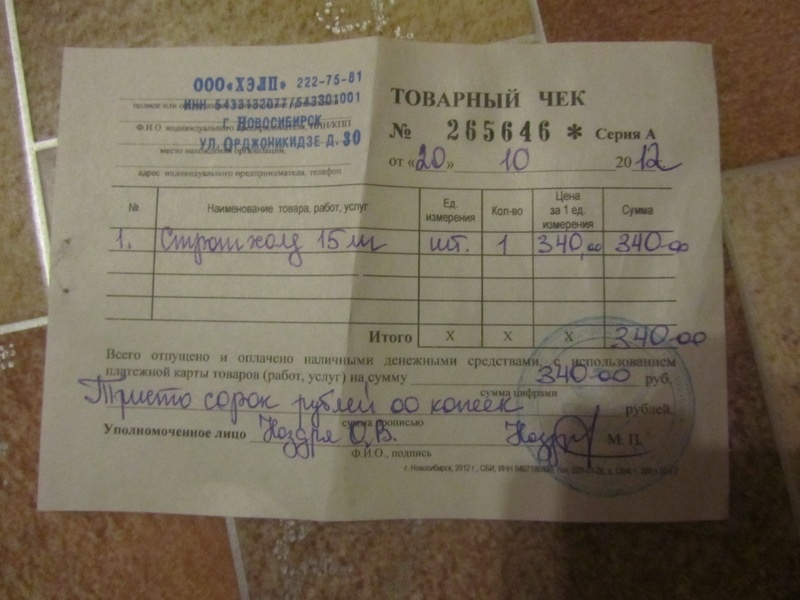 ООО «ХЭЛП» 222-75-81
ИНН 5433132077/543301001
г. Новосибирск
ул. Орджоникидзе д. 30
Ф.И.О. индивидуального
место нахождения организации,
адрес индивидуального предпринимателя, телефон
ТОВАРНЫЙ ЧЕК
№ 265646 * Серия А
от «20» 10 2012
№ Наименование товара, работ, услуг Ед. измерения Кол-во Цена за 1 ед. измерения Сумма
1. Стронгхолд 15 шт. 1 340,00 340-00
Итого X X X 340-00
Всего отпущено и оплачено наличными денежными средствами, с использованием
платежной карты товаров (работ, услуг) на сумму 340-00 руб.
сумма цифрами
Тристо сорок рублей 00 копеек рублей
сумма прописью
Уполномоченное лицо Ноздря О.В. М. П.
Ф.И.О., подпись
г. Новосибирск, 2012 г.,